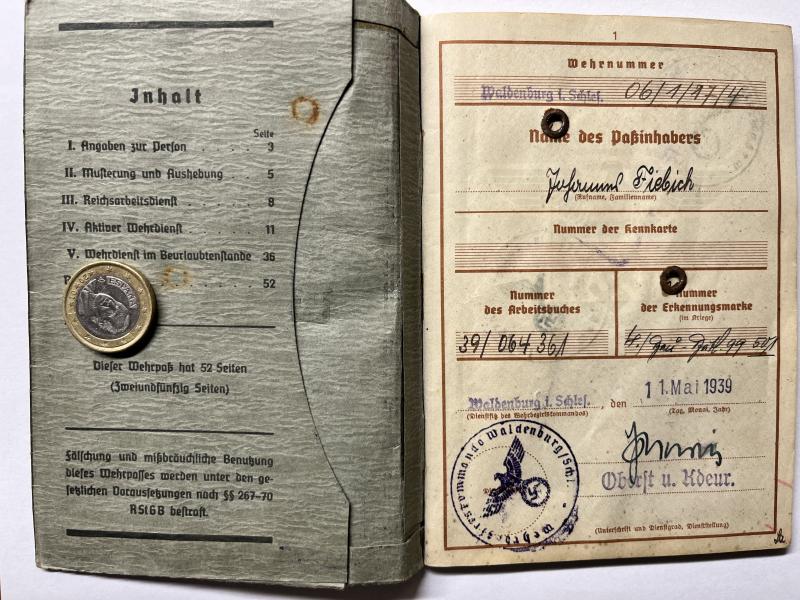 Inhalt
Seite
I. Angaben zur Person . . . . 3
II. Musterung und Aushebung . 5
III. Reichsarbeitsdienst . . . . 8
IV. Aktiver Wehrdienst . . . . 11
V. Wehrdienst im Beurlaubtenstande 36
52
ESPAÑA
Dieser Wehrpaß hat 52 Seiten
(Zweiundfünfzig Seiten)
Fälschung und mißbräuchliche Benutzung
dieses Wehrpasses werden unter den ge-
setzlichen Voraussetzungen nach §§ 267–70
RStGB bestraft.
1
Wehrnummer
Waldenburg i. Schles. 06/1/27/4
Name des Paßinhabers
Johannes Fiebich
(Rufname, Familienname)
Nummer der Kennkarte
Nummer
des Arbeitsbuches
39/064361
Nummer
der Erkennungsmarke
(im Kriege)
Waldenburg i. Schles., den 11. Mai 1939
(Dienstsitz des Wehrbezirkskommandos) (Tag, Monat, Jahr)
Wehrbezirkskommando Waldenburg/Schl.
Oberst u. Kdeur.
(Unterschrift und Dienstgrad, Dienststellung)